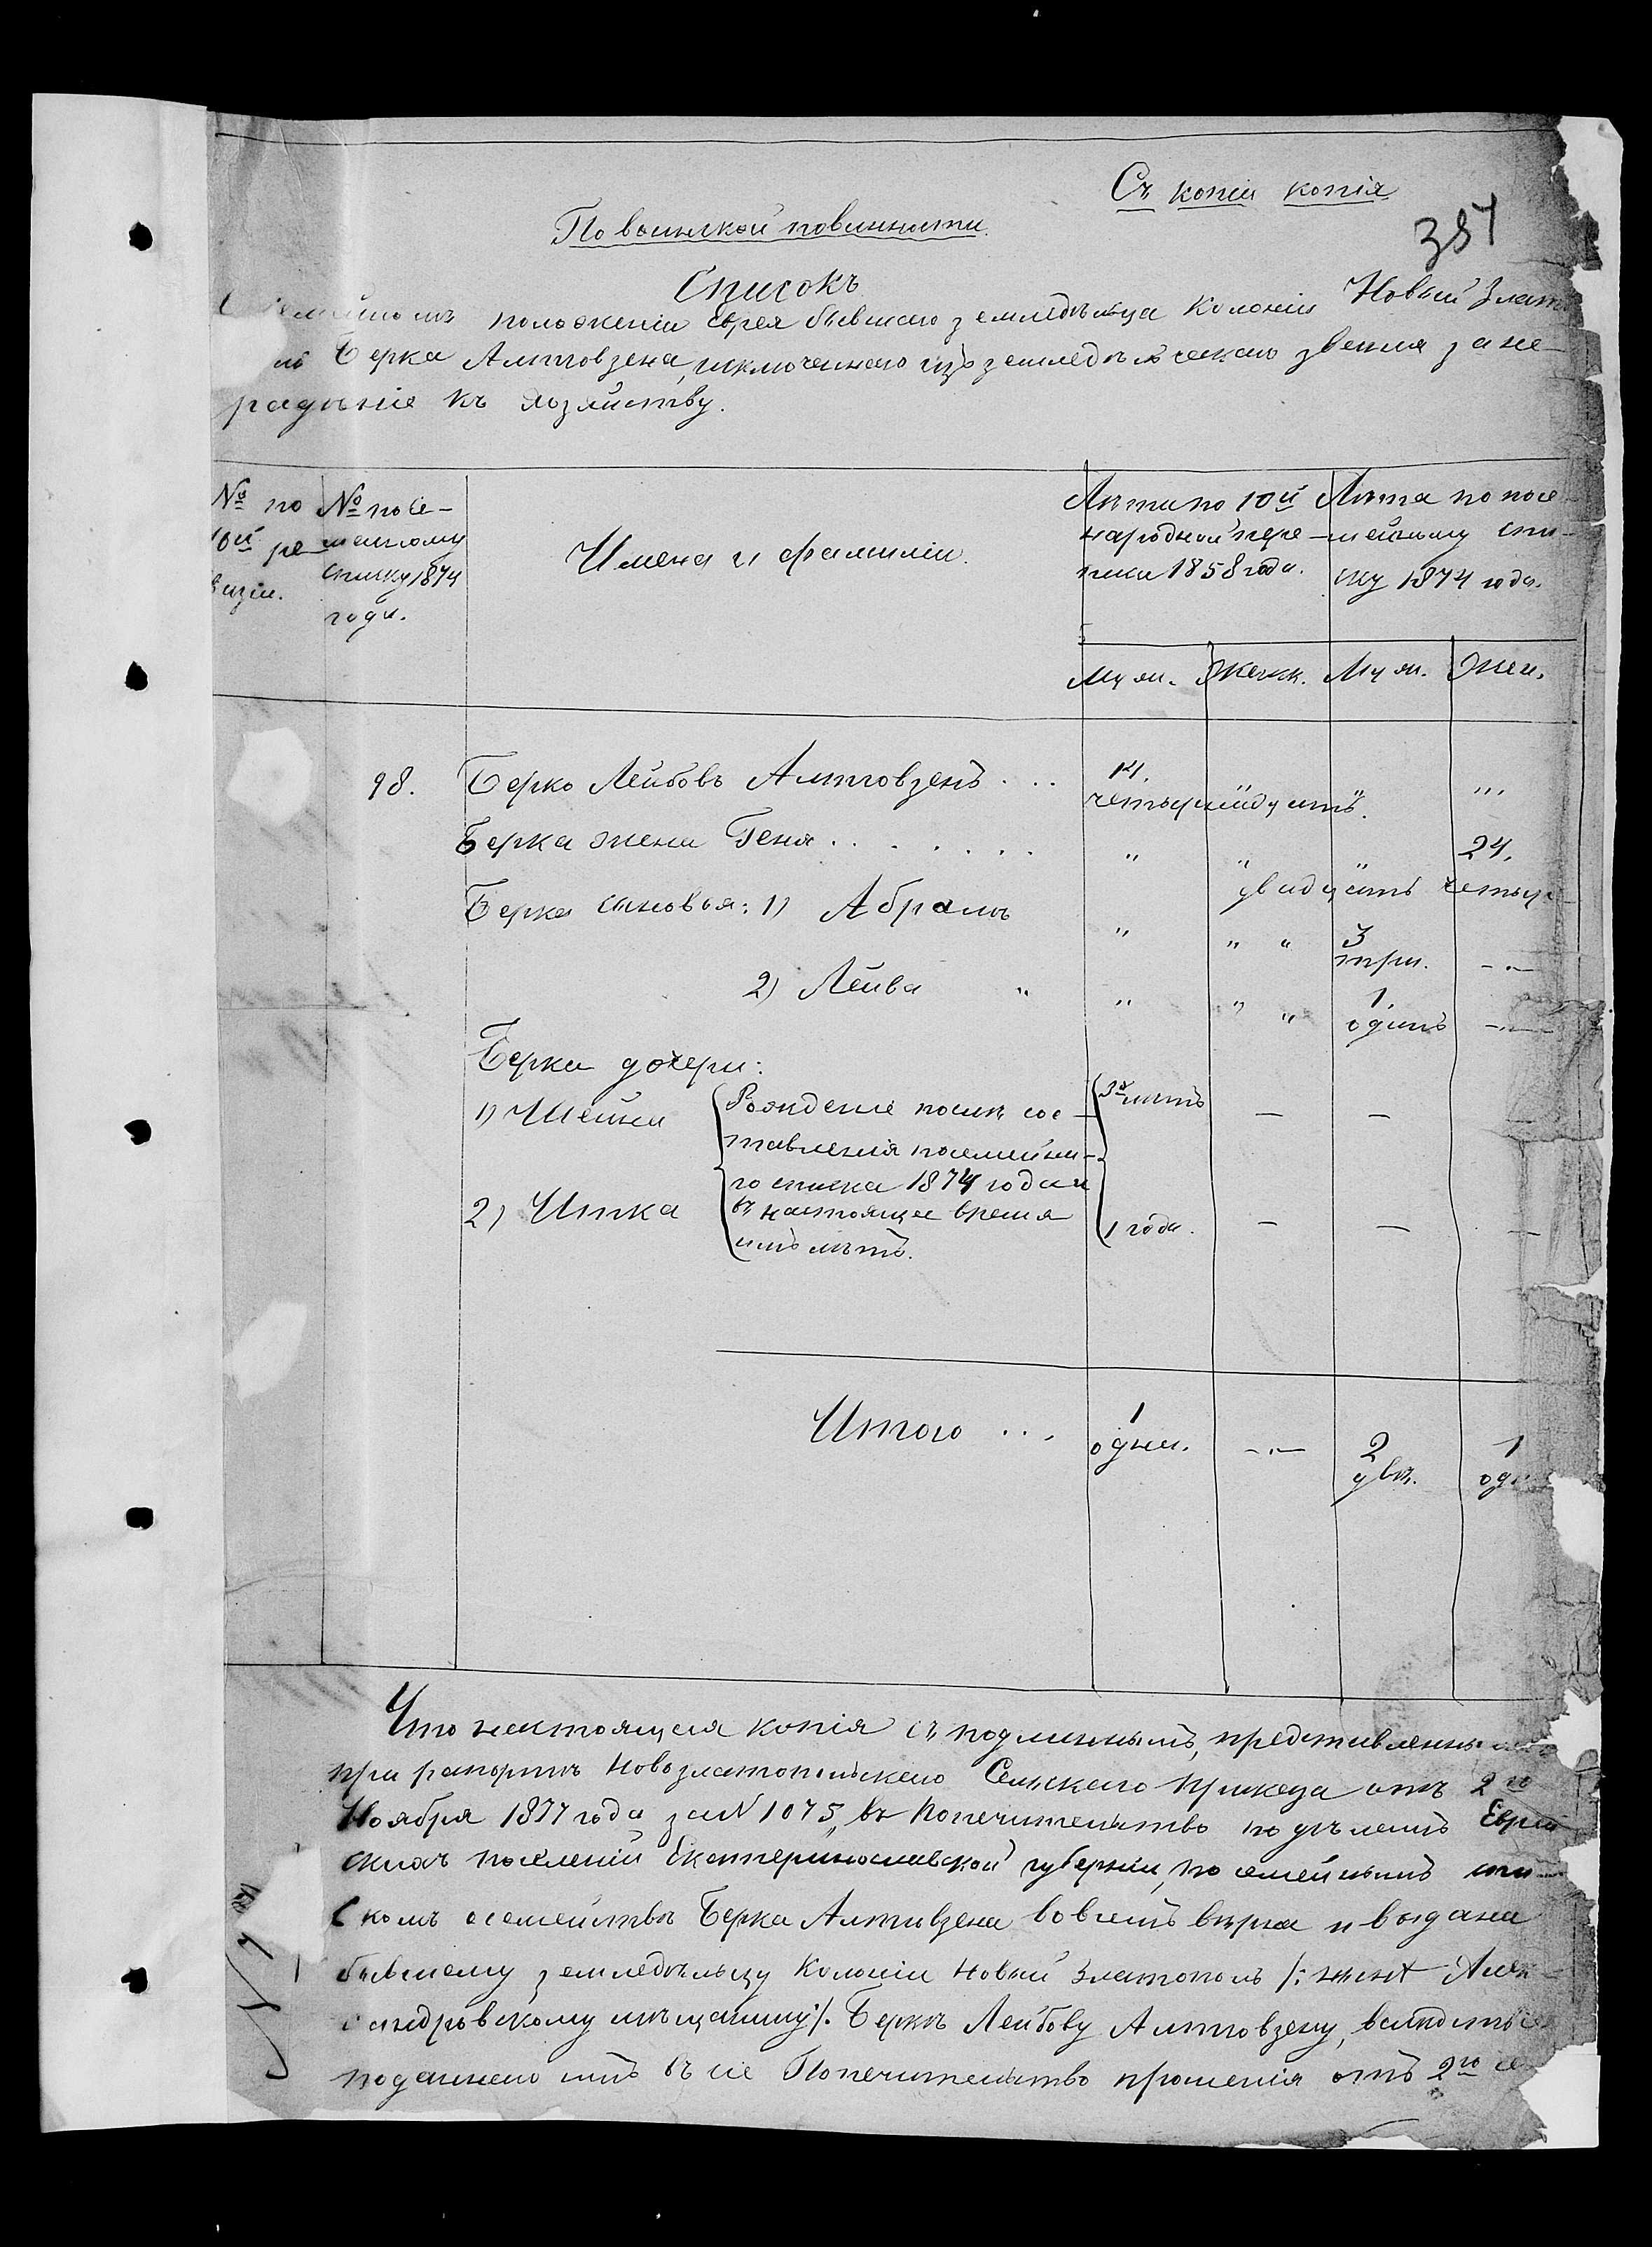 Съ копіи копія
По воинской повинности.
384
Списокъ
семейномъ положеніи Еврея бывшаго земледѣльца Колоніи Новый Злато
ль Берка Алтговзена, исключеннаго изъ земледѣльческаго званія за не-
радѣніе къ хозяйству.
№ по 10й ре- визіи.
№ по се- мейному списку 1874 года.
Имена и фамиліи.
Лѣта по 10й народной пере- писи 1858 года.
Лѣта по посе- мейному спи- ску 1874 года.
Муж. Женск. Муж. Жен.
98. Берко Лейбовъ Алтговзенъ . . . 14. " " "
четырнадцать.
Берка жена Геня . . . . . . . " " " 24.
двадцать четыре
Берка сыновья: 1) Абрамъ " " " 3 три. -"-
2) Лейва " " " " 1. одинъ -"-
Берка дочери:
1) Шейна
Рождене послѣ сос-
тавленія посемейна-
го списка 1874 года и
въ настоящее время
имъ лѣтъ.
3х лѣтъ — —
2) Итка 1 года. — — —
Итого . . . 1 -"- 2 1
одна. двѣ. од
Что настоящая копія съ подлиннымъ, представленны
при рапортѣ Новозлатопольскаго Сельскаго Приказа отъ 2го
Ноября 1877 года за № 1075, въ Попечительство подѣламъ Еврей
скихъ поселеній Екатеринославской губерніи, посемейнымъ спи-
скомъ о семействѣ Берка Алтговзена во всемъ вѣрна и выдана
бывшему земледѣльцу Колоніи Новый Златополь /: нынѣ Алек-
сандровскому мѣщанину :/. Беркѣ Лейбову Алтговзену, вслѣдствіе
поданнаго имъ въ сіе Попечительство прошенія отъ 2го се